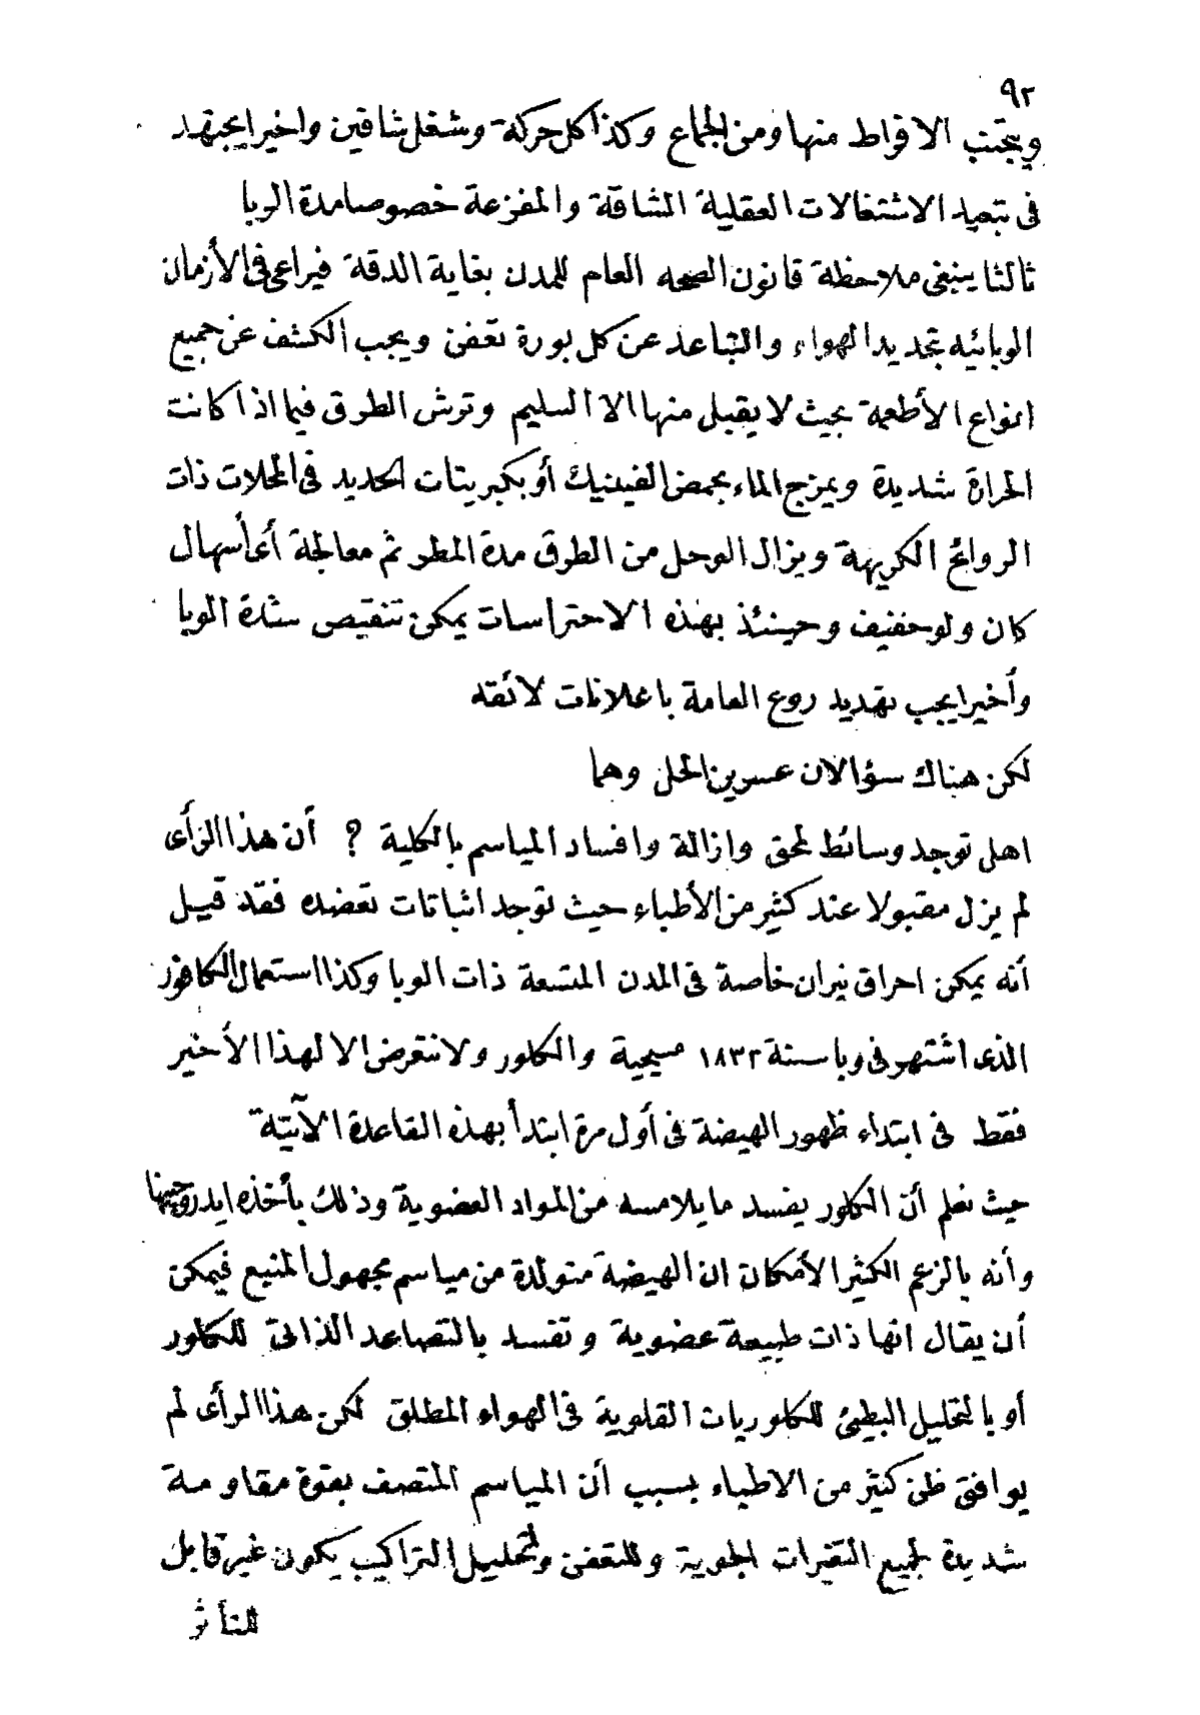 ٩٢
ويجتنب الافراط منها ومن الجماع وكذا كل حركة وشغل شاقين واخيرا يجتهد
فى تبعيد الاشتغالات العقلية الشاقة والمفزعة خصوصا مدة الوبا
ثالثا ينبغى ملاحظة قانون الصحه العام للمدن بغاية الدقة فيراعى فى الأزمان
الوبائيه تجديد الهواء والتباعد عن كل بورة تعفن ويجب الكشف عن جميع
انواع الأطعمة بحيث لا يقبل منها الا السليم وترش الطرق فيما اذا كانت
الحرارة شديدة ويمزج الماء بحمض الفينيك أو بكبريتات الحديد فى المحلات ذات
الروائح الكريهة ويزال الوحل من الطرق مدة المطر ثم معالجة أى أسهال
كان ولو خفيف وحينئذ بهذه الاحتراسات يمكن تنقيص شدة الوبا
وأخيرا يجب تهديد روع العامة باعلانات لائقه
لكن هناك سؤالان عسرين الحل وهما
اهل توجد وسائط لمحق وازالة وافساد المياسم بالكلية ? أن هذا الرأى
لم يزل مقبولا عند كثير من الأطباء حيث توجد اثباتات تعضده فقد قيل
أنه يمكن احراق نيران خاصة فى المدن المتسعة ذات الوبا وكذا استعمال الكافور
الذى اشتهر فى وبا سنة ١٨٣٢ مسيحية والكلور ولا نتعرض الا لهذا الأخير
فقط فى ابتداء ظهور الهيضة فى أول مرة ابتدأ بهذه القاعدة الآتية
حيث نعلم أن الكلور يفسد ما يلامسه من المواد العضوية وذلك بأخذه ايدروجينها
وأنه بالزعم الكثير الأمكان ان الهيضة متولدة من مياسم مجهول المنبع فيمكن
أن يقال انها ذات طبيعة عضوية وتفسد بالتصاعد الذاتى للكلور
أو بالتحليل البطيئ للكلوريات القلوية فى الهواء المطلق لكن هذا الرأى لم
يوافق ظن كثير من الاطباء بسبب أن المياسم المتصف بقوة مقاومة
شديدة لجميع التغيرات الجوية وللتعفن ولتحليل التراكيب يكون غير قابل
للتأثر